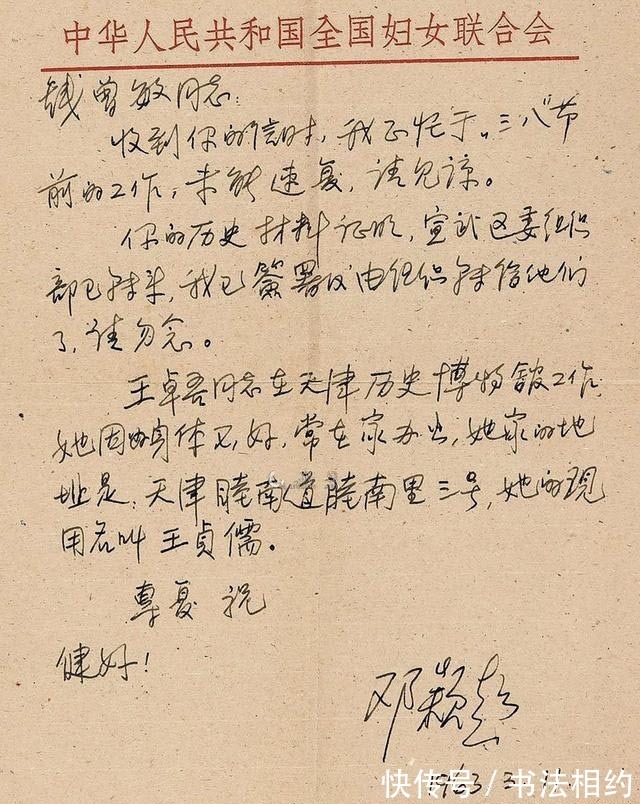 中华人民共和国全国妇女联合会
钱曾敏同志:
收到你的信时,我正忙于"三八"节
前的工作,未能速复,请见谅。
你的历史材料证明,宣武区委组织
部已转来,我已签署仅由组织转给他们
了,请勿念。
王卓吾同志在天津历史博物馆工作,
她因为身体不好,常在家办公,她家的地
址是:天津睦南道睦南里三号,她的现
用名叫王贞儒。
专复 祝
健好!
邓颖超
1963.3.11.
快传号/书法相约